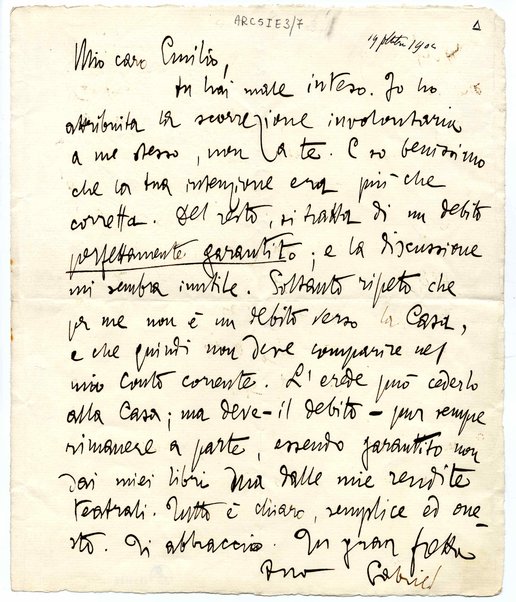 ARCSIE3/7
Δ
19 1902
Mio caro Emilio,
tu hai male inteso. Io ho
attribuita la scorrezione involontaria
a me stesso, non a te. E so benissimo
che la tua intenzione era più che
corretta. Del resto, si tratta di un debito
perfettamente garantito; e la discussione
mi sembra inutile. Soltanto ripeto che
per me non è un debito verso la Casa,
e che quindi non deve comparire nel
mio conto corrente. L'erede può cederlo
alla Casa; ma deve - il debito - pur sempre
rimanere a parte, essendo garantito non
dai miei libri ma dalle mie rendite
teatrali. Tutto è chiaro, semplice ed one-
sto. Ti abbraccio. In gran fretta
tuo Gabriel